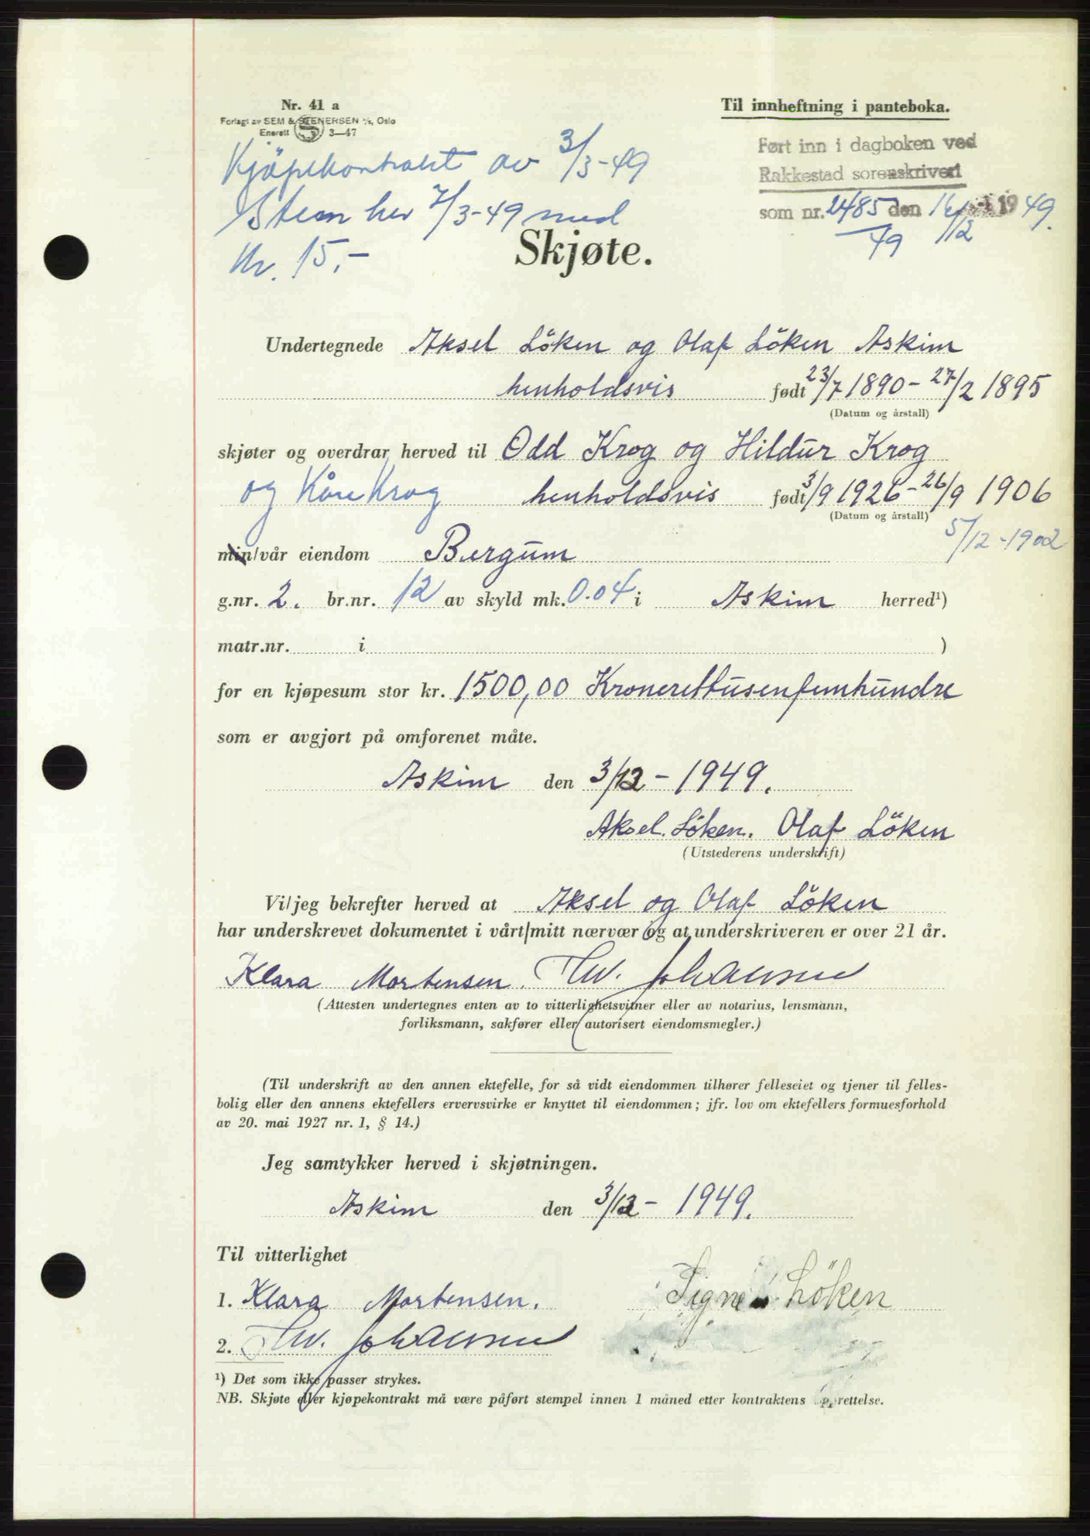 Nr. 41 a
Forlagt av SEM & STENERSEN A/S, Oslo
Enerett S 3—47
Til innheftning i panteboka.
Kjöpekontrakt av 3/3-49
Stem hev 7/3-49 med
Kr. 15.-
Ført inn i dagboken ved
Rakkestad sorenskriveri
som nr. 2485/49 den 16/12 1949.
Skjøte.
Undertegnede Aksel Löken og Olaf Löken Askim
henholdsvis født 23/7 1890 - 27/2 1895
(Datum og årstall)
skjøter og overdrar herved til Odd Krog og Hildur Krog
og Kåre Krog henholdsvis født 3/9 1926 - 26/9 1906
(Datum og årstall)
5/12-1902
min/vår eiendom Bergum
g.nr. 2. br.nr. 12 av skyld mk. 0.04 i Askim herred¹)
matr.nr. i )
for en kjøpesum stor kr. 1500,00 Kronerettusenfemhundre
som er avgjort på omforenet måte.
Askim den 3/12 - 1949.
Aksel Löken. Olaf Löken
(Utstederens underskrift)
Vi/jeg bekrefter herved at Aksel og Olaf Löken
har underskrevet dokumentet i vårt/mitt nærvær og at underskriveren er over 21 år.
Klara Mortensen. Thv. Johansen
(Attesten undertegnes enten av to vitterlighetsvitner eller av notarius, lensmann,
forliksmann, sakfører eller autorisert eiendomsmegler.)
(Til underskrift av den annen ektefelle, for så vidt eiendommen tilhører felleseiet og tjener til felles-
bolig eller den annens ektefellers ervervsvirke er knyttet til eiendommen; jfr. lov om ektefellers formuesforhold
av 20. mai 1927 nr. 1, § 14.)
Jeg samtykker herved i skjøtningen.
Askim den 3/12 - 1949.
Til vitterlighet
1. Klara Mortensen. Signe Löken
2. Thv. Johansen
¹) Det som ikke passer strykes.
NB. Skjøte eller kjøpekontrakt må være påført stempel innen 1 måned etter kontraktens opprettelse.